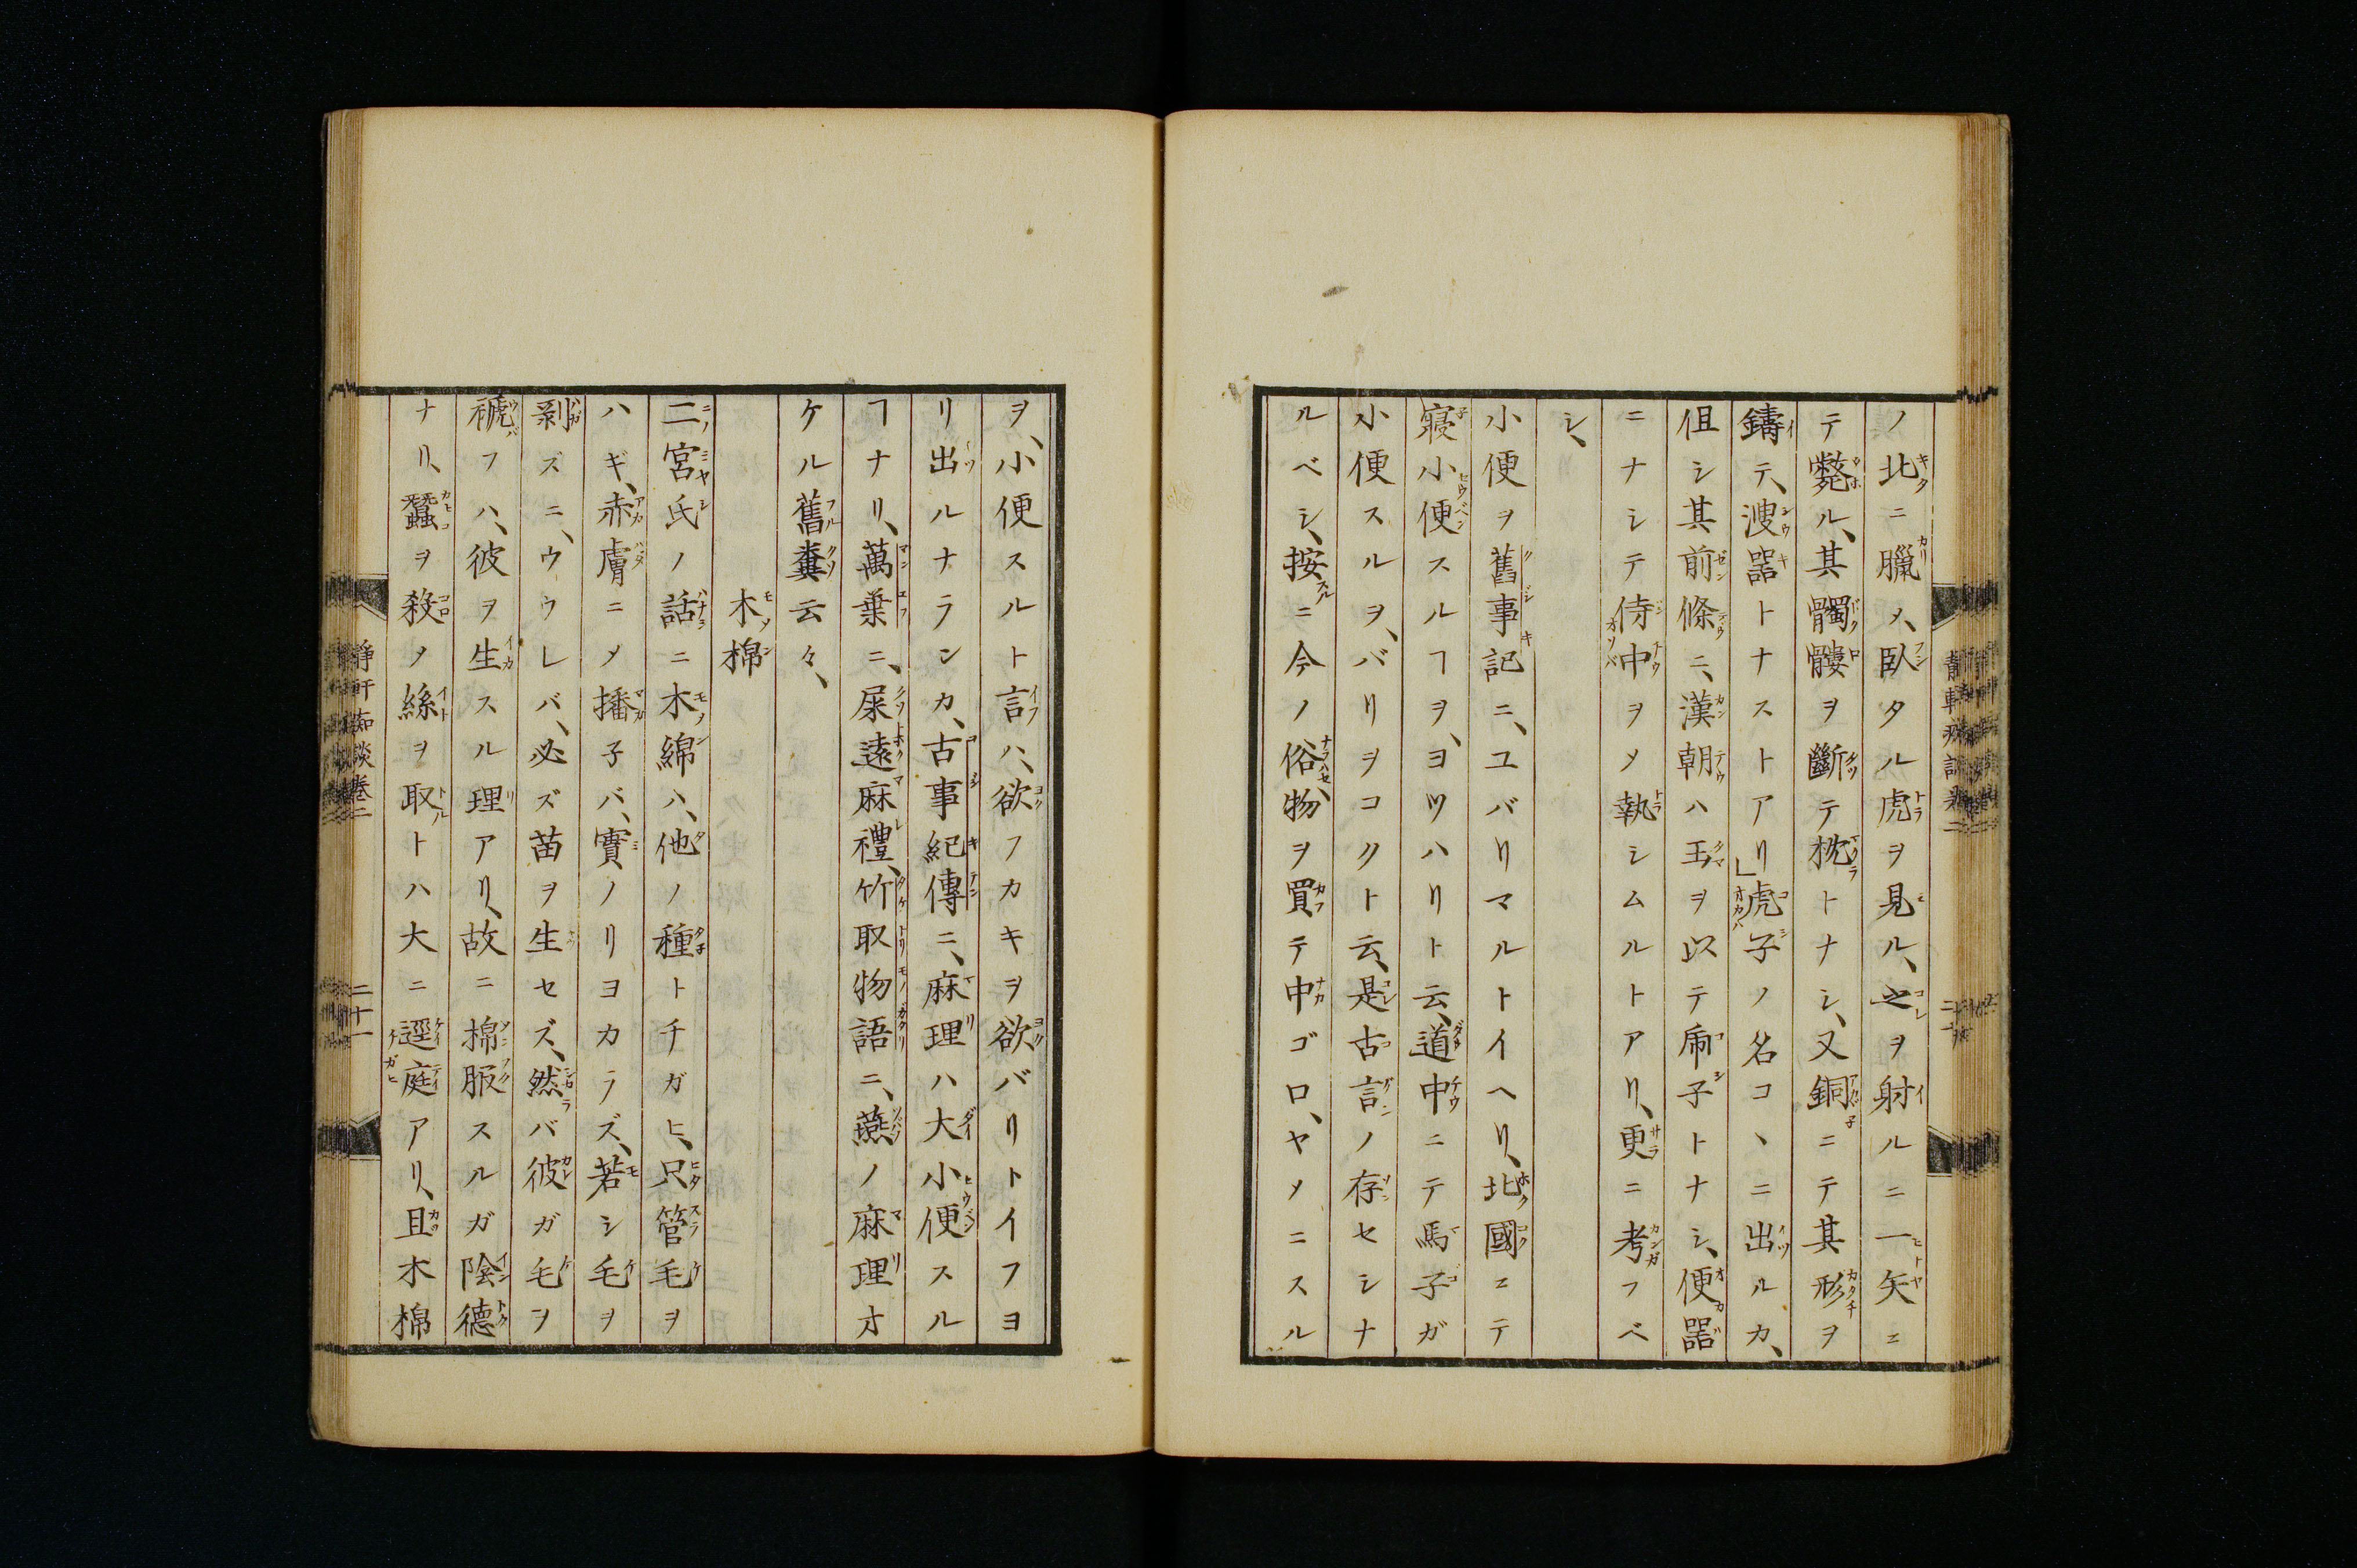 ノ北ニ臘メ、臥タル虎ヲ見ル、之ヲ射ルニ一矢ニ
テ斃ル、其髑髏ヲ斷テ枕トナシ、又銅ニテ其形ヲ
鑄テ、溲器トナストアリ」虎子ノ名コヽニ出ルカ、
伹シ其前條ニ、漢朝ハ玉ヲ以テ𠃵子トナシ、便器
ニナシテ侍中ヲメ執シムルトアリ、更ニ考フベ
シ、
小便ヲ舊事記ニ、ユバリマルトイヘリ、北國ニテ
寢小便スルヿヲ、ヨツハリト云、道中ニテ馬子ガ
小便スルヲ、バリヲコクト云、是古言ノ存セシナ
ルベシ、按ニ今ノ俗物ヲ買テ中ゴロ、ヤメニスル
ヲ、小便スルト言ハ、欲フカキヲ欲バリトイフヨ
リ出ルナランカ、古事紀傳ニ、麻理ハ大小便スル
ヿナリ、萬葉ニ、屎遠麻禮、竹取物語ニ、燕ノ麻理オ
ケル舊糞云々、
木棉
二宮氏ノ話ニ木綿ハ、他ノ種トチガヒ、只管毛ヲ
ハギ、赤膚ニメ播子バ、實ノリヨカラズ、若シ毛ヲ
剝ズニ、ウウレバ、必ズ苗ヲ生セズ、然バ彼ガ毛ヲ
褫フハ、彼ヲ生スル理アリ、故ニ棉服スルガ陰德
ナリ、蠶ヲ殺メ絲ヲ取トハ大ニ逕庭アリ、且木棉
靜軒痴談卷二
二十一